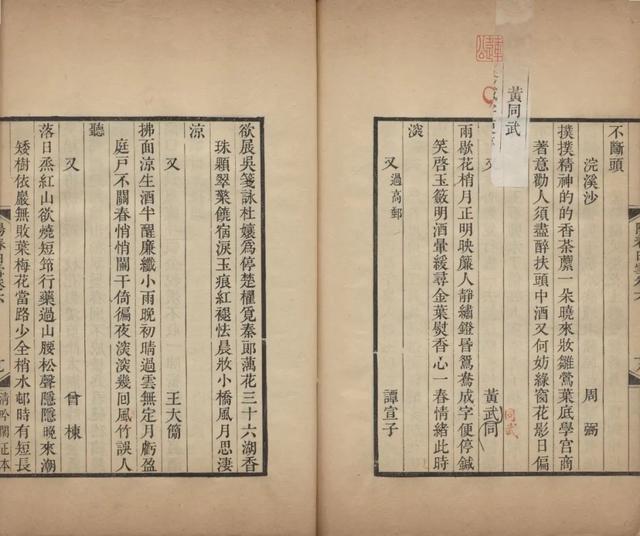 不斷頭
浣溪沙
周弼
撲撲精神的的香茶䕷一朶曉來妝雛鶯葉底學宮商
著意勸人須盡醉扶頭中酒又何妨緣窗花影日偏
黃同武
又
黃武同
同武
雨歇花梢月正明映簾人靜繡鐙昏鴛鴦成字便停鍼
笑啓玉籢明酒暈緩尋金葉熨香心一春情緒此時
深
又過高郵
譚宣子
欲展吳箋詠杜孃爲停楚櫂覓秦郞藕花三十六湖香
珠顆翠檠饒宿淚玉痕紅褪怯晨妝小橋風月思淒
涼
又
王大簡
拂面涼生酒半醒廉纖小雨晚初晴過雲無定月虧盈
庭戸不關春悄悄闌干倚徧夜深深幾回風竹誤人
聽
又
曾棟
落日烝紅山欲燒短笻行藥過山腰松聲隱隱晚來潮
矮樹依巖無敗葉梅花當路少全梢水邨時有短長
陽春白雪卷六
清吟閣正本